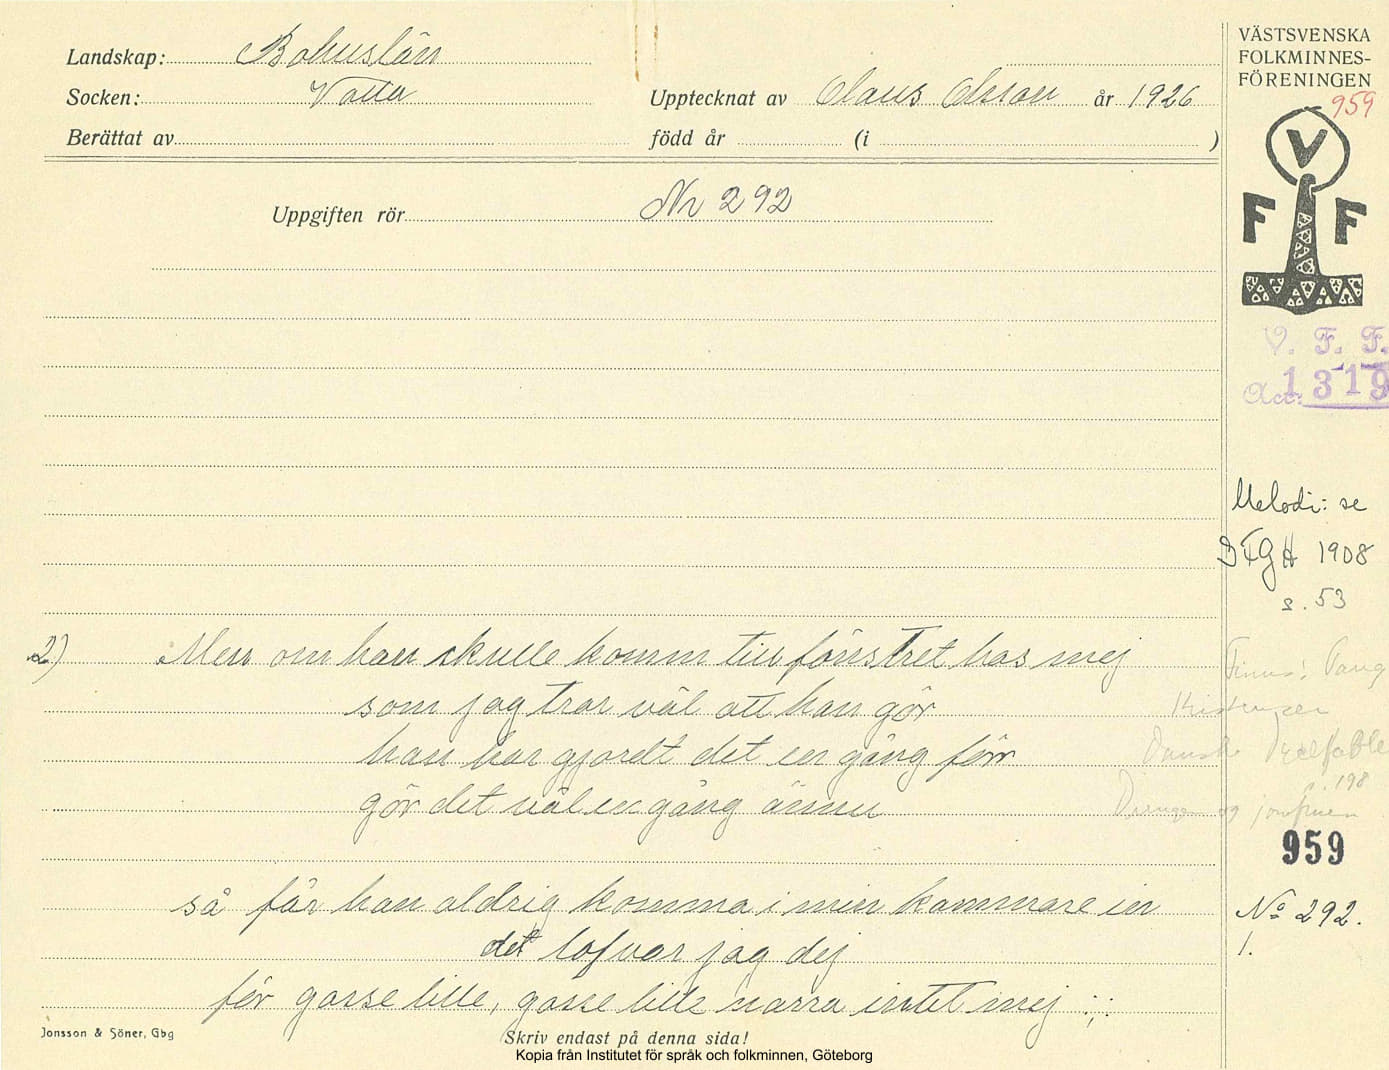 Landskap: Bohuslän
Socken: Valla
Upptecknat av Claus Olsson år 1926
Berättat av
född år (i )
Uppgiften rör Nr 292
VÄSTSVENSKA
FOLKMINNES-
FÖRENINGEN
959
V
F F
V. F. F.
Acc: 1319
Melodi: se
BFGH 1908
s. 53
2) Men om han skulle komm till fönstret hos mej
som jag tror väl att han gör
han har gjordt det en gång förr
gör det väl en gång ännu
så får han aldrig komma i min kammare in
det lofvar jag dej
för gosse lille, gosse lille narra intet mej :,:
Finns! Vang
Kristensen
Danske
s. 198
og jomfruen
959
No 292.
1.
Jonsson & Söner, Gbg
Skriv endast på denna sida!
Kopia från Institutet för språk och folkminnen, Göteborg